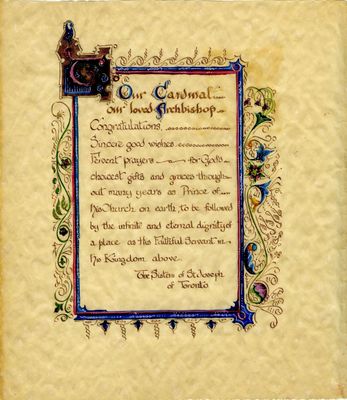 To Our Cardinal
our loved Archbishop
Congratulations,
Sincere good wishes
Fervent prayers for God's
choicest gifts and graces through-
out many years as Prince of
His Church on earth, to be followed
by the infinite and eternal dignity of
a place as His Faithful Servant in
his Kingdom above.
The Sisters of St. Joseph
of Toronto